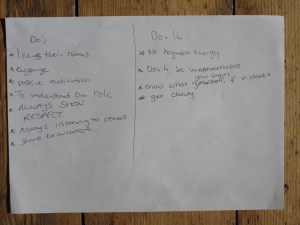 Do's
* Learn their names
* Engage
* positive motivation
* To understand our role
* ALWAYS SHOW
RESPECT.
* Always listening to others
* share knowledge.
Don'ts
* No Negative Energy
* Don't be unapproachable
* Know what your saying, if in doubt
* get clarity